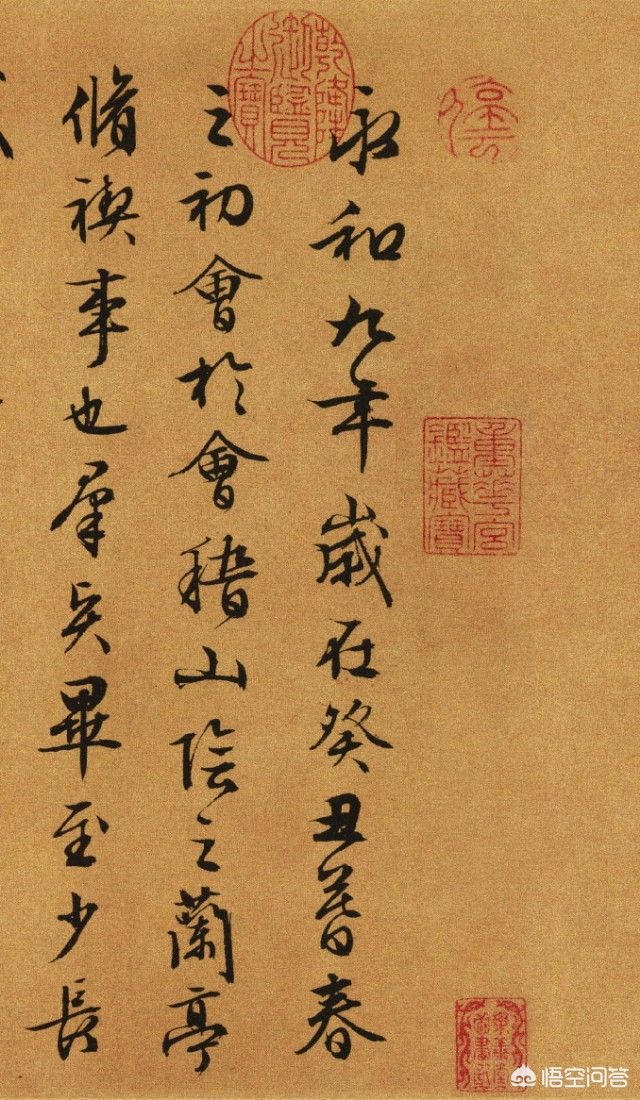 永和九年歲在癸丑暮春
之初會於會稽山陰之蘭亭
脩禊事也羣賢畢至少長
乾隆御覽之寶
重華宮鑑藏寶
悟空问答